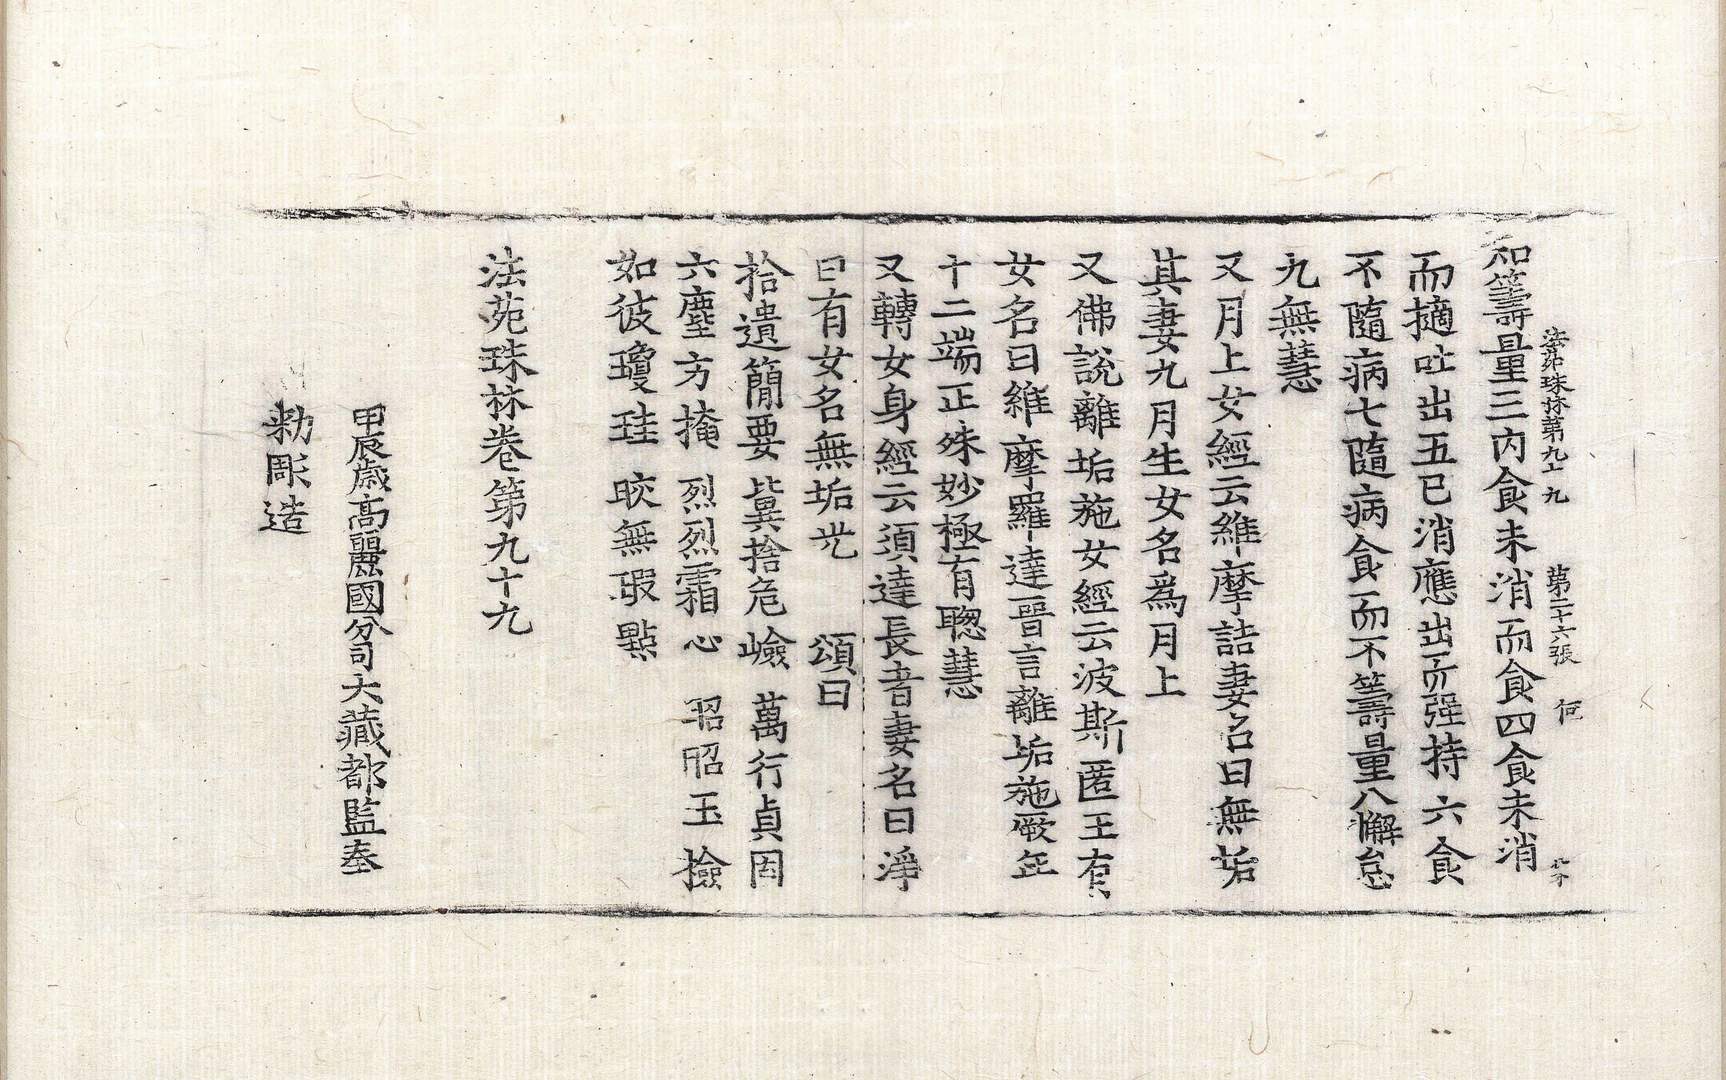 法苑珠林第九十九 第二十六張 何
知籌量三內食未消而食四食未消
而擿吐出五已消應出而强持六食
不隨病七隨病食而不籌量八懈怠
九無慧
又月上女經云維摩詰妻名曰無垢
其妻九月生女名爲月上
又佛說離垢施女經云波斯匿王有
女名曰維摩羅達晉言離垢施厥年
十二端正殊妙極有聰慧
又轉女身經云須達長者妻名曰淨
日有女名無垢光 頌曰
拾遺簡要 冀捨危嶮 萬行貞固
六塵方掩 烈烈霜心 昭昭玉撿
如彼瓊珪 皎無瑕點
法苑珠林卷第九十九
甲辰歲高麗國分司大藏都監奉
勅彫造